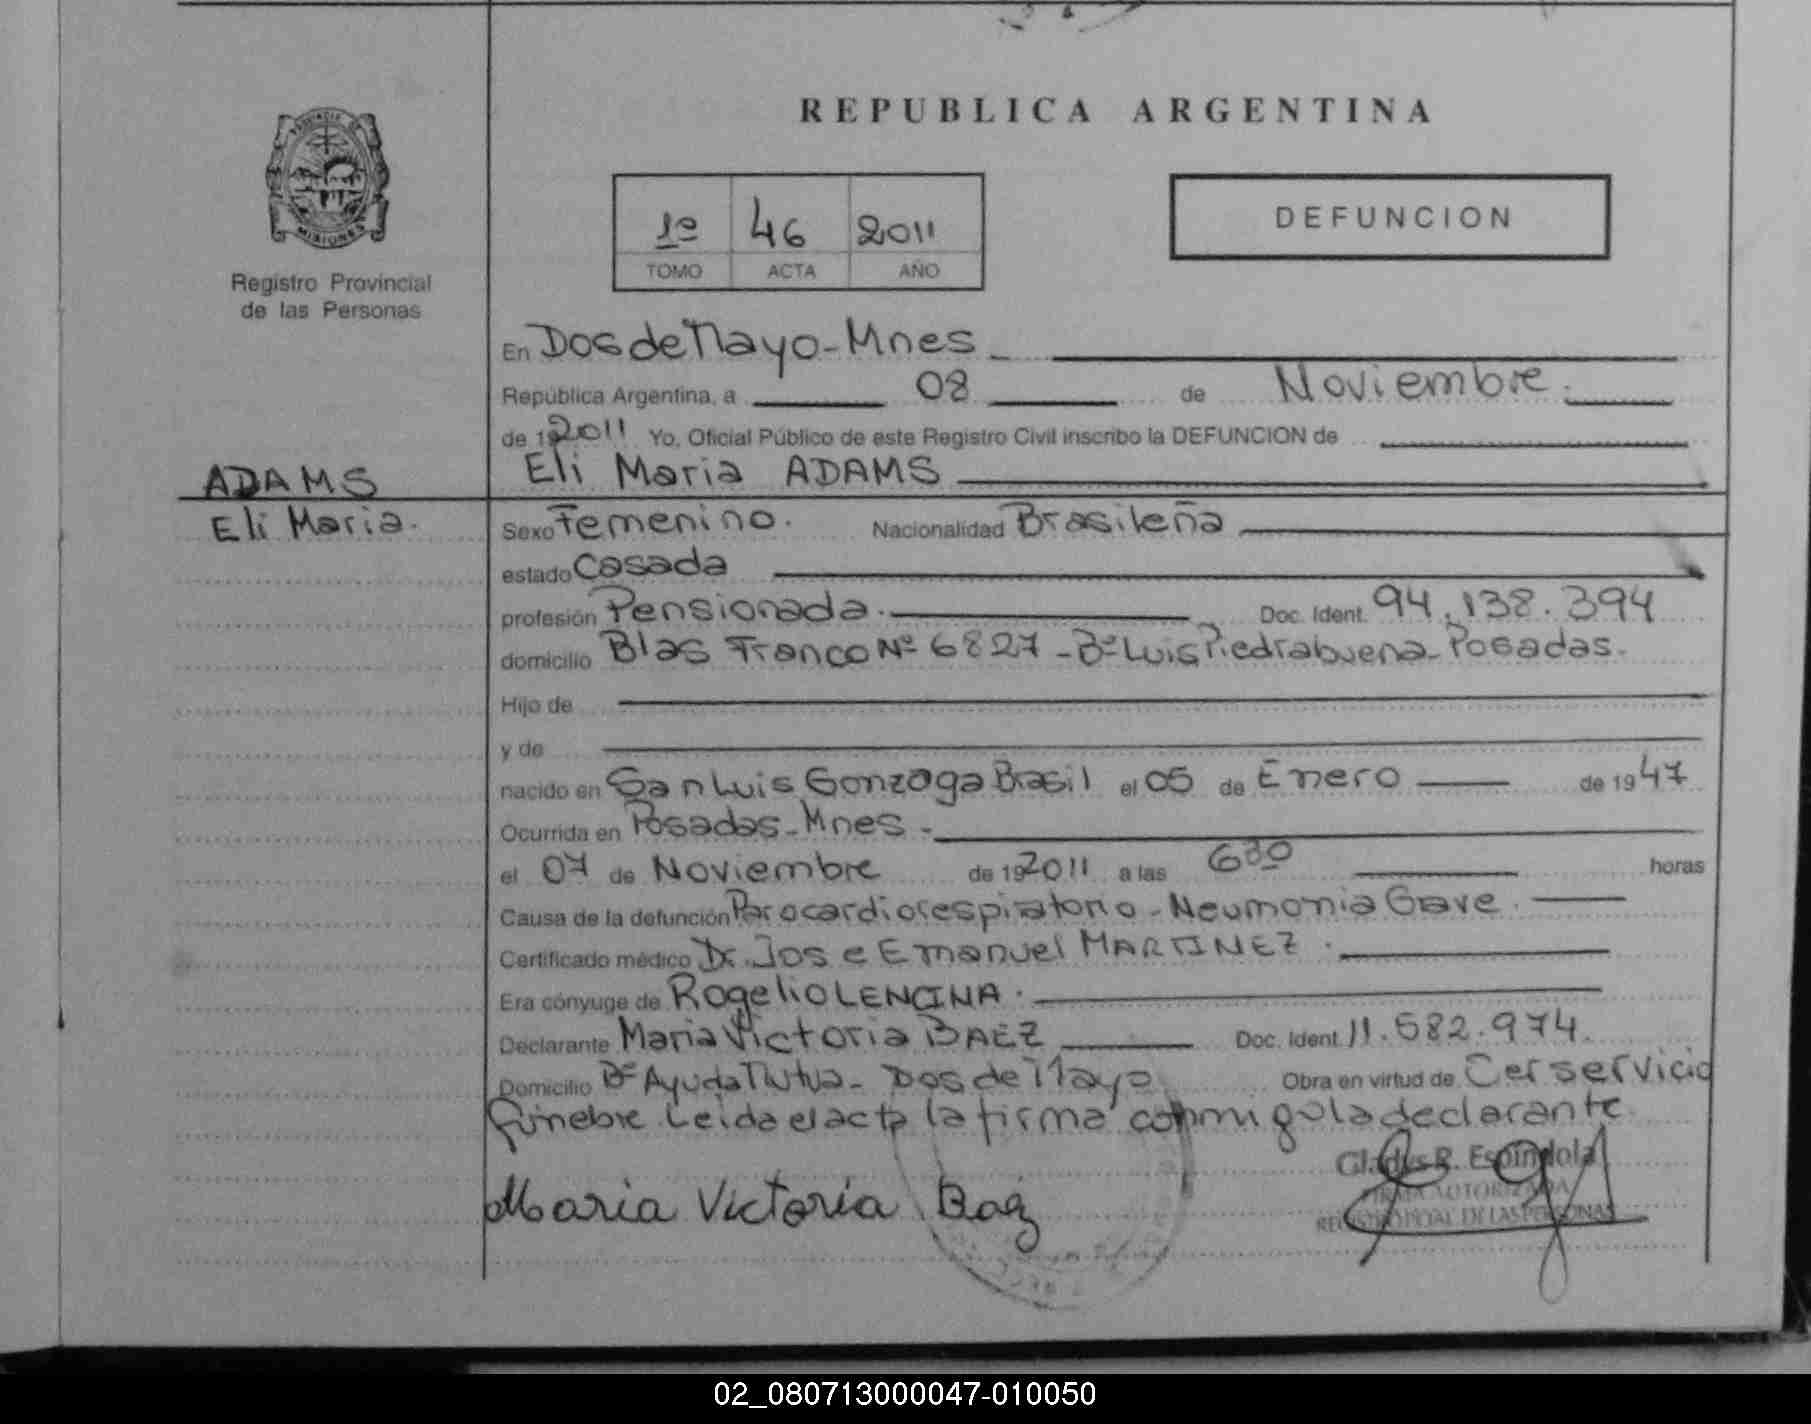 REPUBLICA ARGENTINA
PROVINCIA DE
MISIONES
Registro Provincial
de las Personas
1º 46 2011
TOMO ACTA AÑO
DEFUNCION
En Dos de Mayo - Mnes
República Argentina, a 08 de Noviembre.
de 192011 Yo, Oficial Público de este Registro Civil inscribo la DEFUNCION de
Eli Maria ADAMS
ADAMS
Eli Maria.
Sexo Femenino. Nacionalidad Brasileña
estado Casada
profesión Pensionada. Doc. Ident. 94.138.394
domicilio Blas Franco Nº 6827 - Bº Luis Piedrabuena - Posadas.
Hijo de
y de
nacido en San Luis Gonzaga Brasil el 05 de Enero de 1947
Ocurrida en Posadas - Mnes -
el 07 de Noviembre de 192011 a las 630 horas
Causa de la defunción Parocardiorespiratorio - Neumonia Grave.
Certificado médico Dr. Jose Emanuel MARTINEZ.
Era cónyuge de Rogelio LENCINA.
Declarante Maria Victoria BAEZ Doc. Ident. 11.582.974.
Domicilio Bº Ayuda Mutua - Dos de Mayo Obra en virtud de Cer servicio
fúnebre Leida el acta la firma conmigo la declarante
Gladys R. Espindola
FIRMA AUTORIZADA
REGISTRO PCIAL. DE LAS PERSONAS
Maria Victoria Baez
02_080713000047-010050